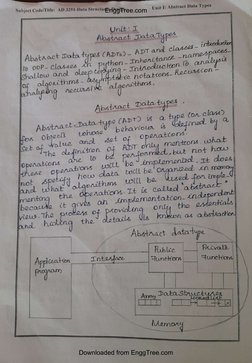 Subject Code/Title: AD 3251 Data Structures
EnggTree.com
Unit I: Abstract Data Types
Unit: I
Abstract Data Types
Abstract Data types (ADTs) - ADT and classes - introduction
to OOP - classes in python - Inheritance - namespaces -
Shallow and deep copying - Introduction to analysis
of algorithms - asymptotic notations - Recursion -
analyzing recursive algorithms.
Abstract Data types.
Abstract Data type (ADT) is a type (or class)
for object whose behaviour is defined by a
set of value and set of operations.
The definition of ADT only mentions what
operations are to be performed but not how
these operations will be implemented. It does
not specify how data will be organized in memory
and what algorithms will be used for imple-
menting the operations. It is called "abstract"
because it gives an implementation independent
view. The process of providing only the essentials
and hiding the details is known as abstraction.
Abstract datatype
Application program
Interface
Public Functions
Private Functions
Data Structures
Array
Linked List
Memory
Downloaded from EnggTree.com